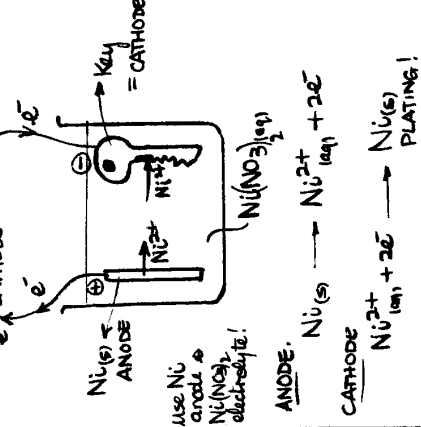 e⁻
e⁻
e⁻
Key
= CATHODE
⊕
⊖
Ni(s)
ANODE
Ni²⁺
Ni²⁺
Use Ni
anode &
Ni(NO₃)₂
electrolyte!
Ni(NO₃)₂(aq)
ANODE.
Ni(s) → Ni²⁺(aq) + 2e⁻
CATHODE
Ni²⁺(aq) + 2e⁻ → Ni(s)
PLATING!